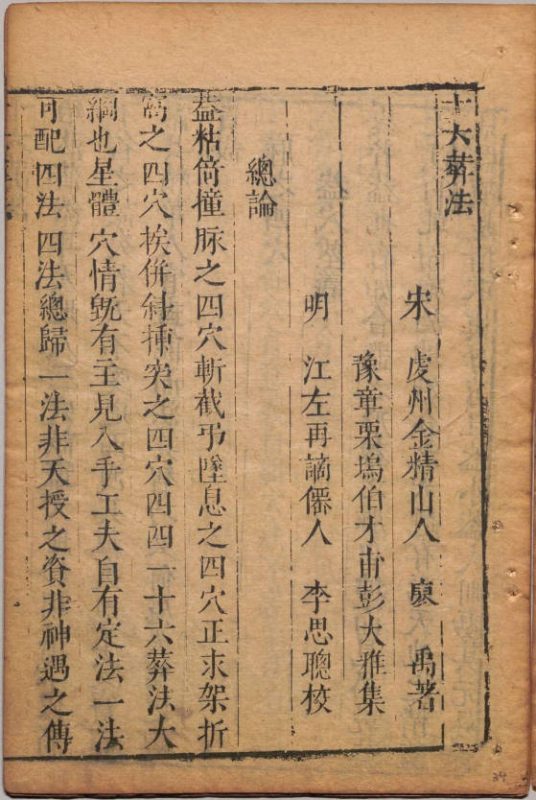 十六葬法
宋 虔州金精山人 廖 禹著
豫章栗塢伯才甫彭大雅集
明 江左再謫僊人 李思聰校
總論
葢粘倚撞脉之四穴斬截弔墜息之四穴正求架折
窩之四穴挨併斜揷突之四穴四四一十六葬法大
綱也星體穴情旣有主見入手工夫自有定法一法
可配四法四法總歸一法非天授之資非神遇之傳
34